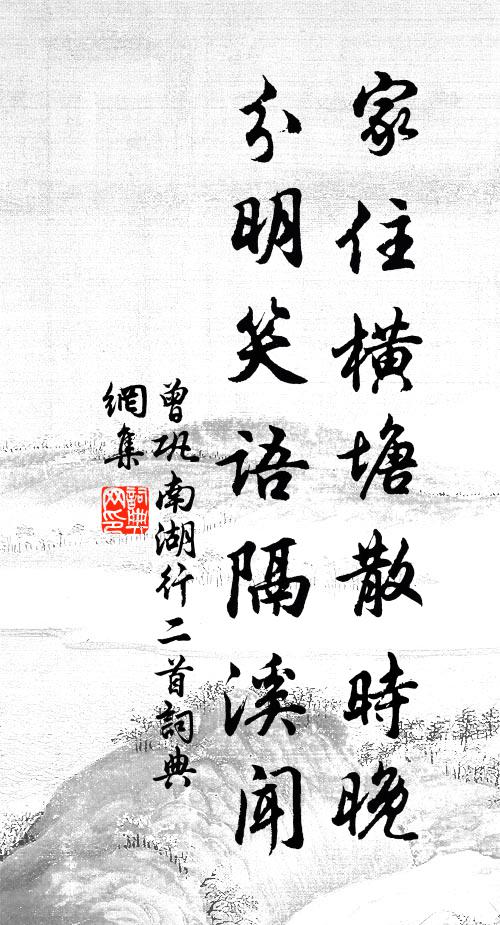 家住橫塘散時晚
分明笑語隔溪聞
曾鞏南湖行二首詞典
網集
詞典
网印